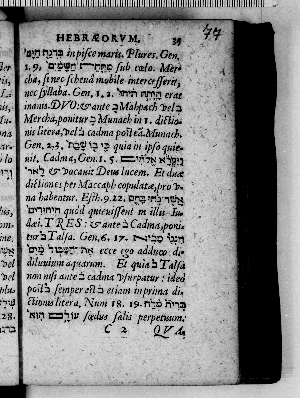 HEBRÆORVM. 39
77
in pisce maris. Plures. Gen.
1. 9. מתחת השמים sub cœlo. Mer-
cha, sine scheua mobile intercesserit,
nec syllaba. Gen. 1. 2. היתה תהו erat
inanis. DVO: & ante Mahpach vel
Mercha, ponitur Munach in 1. dictio-
nis litera, vel cadma post Munach.
Gen. 2. 3. כי בו שבת quia in ipso quie-
uit. Cadma, Gen. 1. 5. ויקרא אלהים לאור
& vocauit Deus lucem. Et duæ
dictiones per Maccaph copulatæ, pro v-
na habentur. Esth. 9. 22.
היהודים quòd quieuissent in illis Iu-
dæi. TRES: & ante Cadma, poni-
tur Talsa. Gen. 6. 17. הנני מביא
את המבול מים ecce ego adduco di-
diluuium aquarum. Et quia Talsa
non nisi ante cadma vsurpatur: ideo
post semper est etiam in prima di-
ctionis litera, Num 18. 19. ברית מלח
עולם הוא fœdus salis perpetuum.
C 2 QVA-